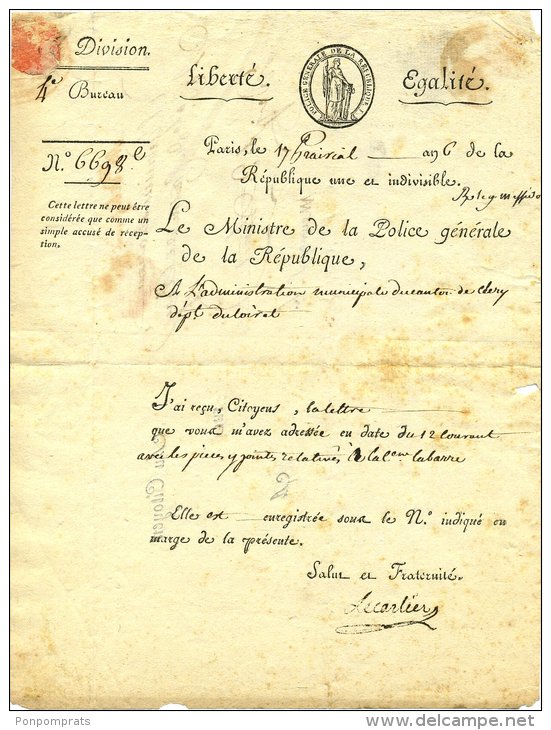 Division.
4e Bureau
Liberté.
POLICE GÉNÉRALE DE LA RÉPUBLIQUE F.
Egalité.
N.° 6698.e
Paris, le 17 Prairial an 6 de la
République une et indivisible.
Rle 9 messidor
Cette lettre ne peut être
considérée que comme un
simple accusé de récep-
tion.
Le Ministre de la Police générale
de la République,
A L'administration municipale du canton de Clery
dépt. du loiret
J'ai reçu, Citoyens, la lettre
que vous m'avez adressée en date du 12 Courant
avec les pieces y jointes relatives à la Cenne labarre
Elle est enregistrée sous le N.° indiqué en
marge de la présente.
Salut et Fraternité.
Lecarlier
Ponpomprats
delcampe.net